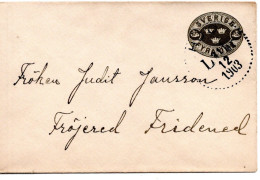 SVERIGE
12
1903
Fröken Judit Jansson
Fröjered Fridened